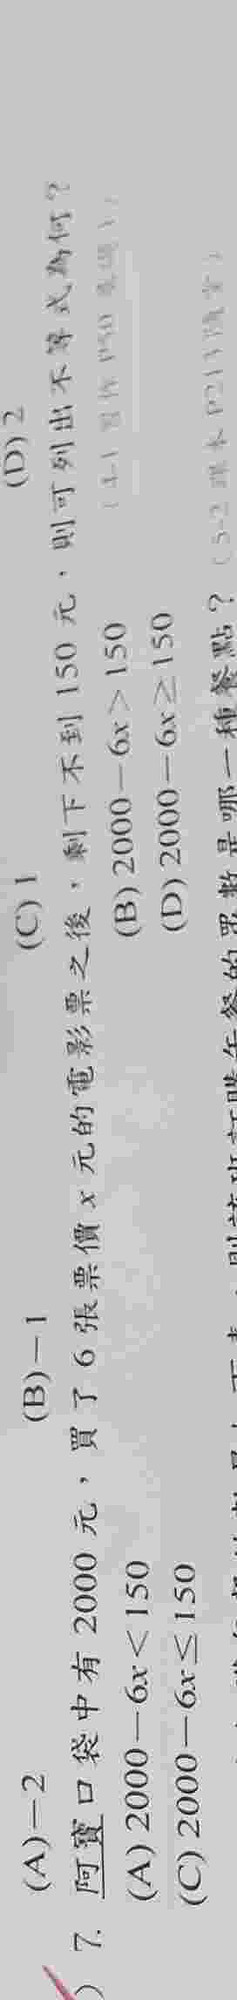 (A)－2 (B)－1 (C) 1 (D) 2
) 7. 阿寶口袋中有 2000 元，買了 6 張票價 x 元的電影票之後，剩下不到 150 元，則可列出不等式為何？
(4-1 習作 P50
(A) 2000－6x＜150 (B) 2000－6x＞150
(C) 2000－6x≤150 (D) 2000－6x≥150
午餐的眾數是哪一種餐點？(5-2 課本 P211